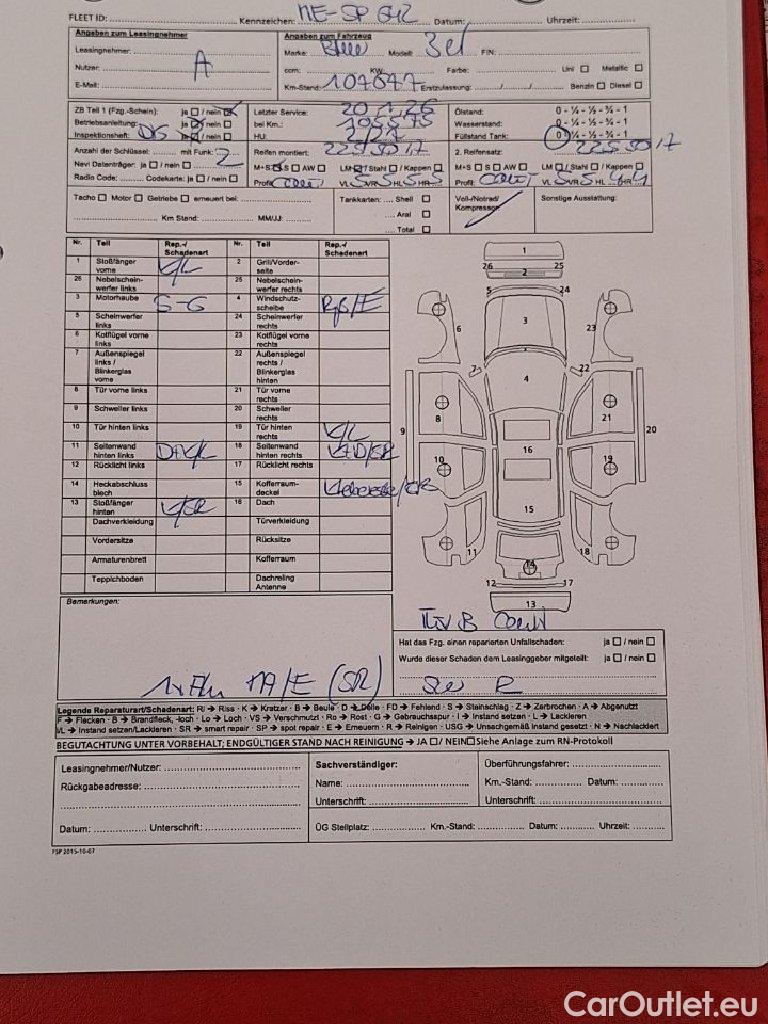 FLEET ID: Kennzeichen: NE-SP 642 Datum: Uhrzeit:
Angaben zum Leasingnehmer
Angaben zum Fahrzeug
Leasingnehmer:
Marke: Modell: FIN:
Nutzer: A
ccm: KW: Farbe: Uni Metallic
E-Mail:
Km-Stand: 107647 Erstzulassung: / / Benzin Diesel
ZB Teil 1 (Fzg.-Schein): ja / nein
Letzter Service: 20.1.26
Ölstand: 0 - ¼ - ½ - ¾ - 1
Betriebsanleitung: ja / nein
bei Km.: 105575
Wasserstand: 0 - ¼ - ½ - ¾ - 1
Inspektionsheft: ja / nein
HU:
Füllstand Tank: 0 - ¼ - ½ - ¾ - 1
Anzahl der Schlüssel: mit Funk: 2
Reifen montiert: 225 50 17
2. Reifensatz: 225 50 17
Navi Datenträger: ja / nein
M+S S AW LM / Stahl / Kappen
M+S S AW LM / Stahl / Kappen
Radio Code: Codekarte: ja / nein
Profil: VL 5 VR 5 HL 5 HR 5
Profil: VL 5 VR 5 HL 4 HR 4
Tacho Motor Getriebe erneuert bei:
Tankkarten: Shell
Voll-/Notrad/
Kompressor
Sonstige Ausstattung:
Km Stand: MM/JJ:
Aral
Total
Nr. Teil Rep.-/ Schadenart Nr. Teil Rep.-/ Schadenart
1 Stoßfänger vorne 2 Grill/Vorder-seite
26 Nebelschein-werfer links 25 Nebelschein-werfer rechts
3 Motorhaube S-G 4 Windschutz-scheibe
5 Scheinwerfer links 24 Scheinwerfer rechts
6 Kotflügel vorne links 23 Kotflügel vorne rechts
7 Außenspiegel links / Blinkerglas vorne 22 Außenspiegel rechts / Blinkerglas hinten
8 Tür vorne links 21 Tür vorne rechts
9 Schweller links 20 Schweller rechts
10 Tür hinten links 19 Tür hinten rechts
11 Seitenwand hinten links 18 Seitenwand hinten rechts
12 Rücklicht links 17 Rücklicht rechts
14 Heckabschluss blech 15 Kofferraum-deckel
13 Stoßfänger hinten 16 Dach
Dachverkleidung Türverkleidung
Vordersitze Rücksitze
Armaturenbrett Kofferraum
Teppichboden Dachreling Antenne
1
26 2 25
5 24
3
6 23
7 22
4
8 21
9 20
16
10 19
15
11 18
14
12 17
13
Bemerkungen:
Hat das Fzg. einen reparierten Unfallschaden: ja / nein
Wurde dieser Schaden dem Leasinggeber mitgeteilt: ja / nein
Legende Reparaturart/Schadenart: RI → Riss · K → Kratzer · B → Beule · D → Delle · FD → Fehlend · S → Steinschlag · Z → Zerbrochen · A → Abgenutzt
F → Flecken · B → Brandfleck, -loch · Lo → Loch · VS → Verschmutzt · Ro → Rost · G → Gebrauchsspur · I → Instand setzen · L → Lackieren
VL → Instand setzen/Lackieren · SR → smart repair · SP → spot repair · E → Erneuern · R → Reinigen · USG → Unsachgemäß instand gesetzt · N → Nachlackiert
BEGUTACHTUNG UNTER VORBEHALT; ENDGÜLTIGER STAND NACH REINIGUNG → JA / NEIN Siehe Anlage zum RN-Protokoll
Leasingnehmer/Nutzer:
Sachverständiger:
Überführungsfahrer:
Rückgabeadresse:
Name:
Km.-Stand: Datum:
Unterschrift:
Unterschrift:
Datum: Unterschrift:
ÜG Stellplatz: Km.-Stand: Datum: Uhrzeit:
FSP 2015-10-07
CarOutlet.eu